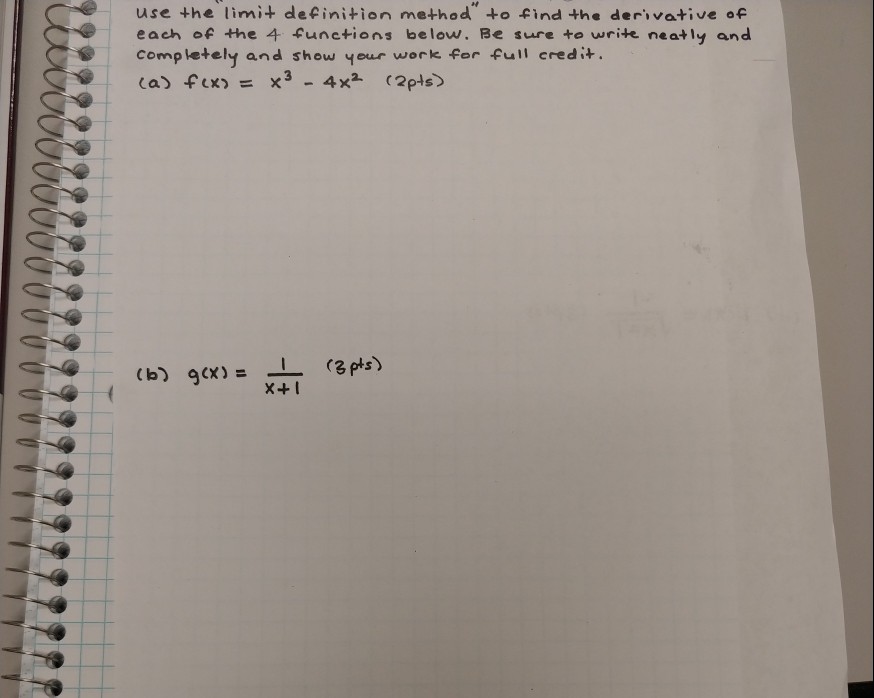 use the "limit definition method" to find the derivative of
each of the 4 functions below. Be sure to write neatly and
completely and show your work for full credit.
(a) f(x) = x³ - 4x² (2pts)
(b) g(x) = 1/(x+1) (3pts)